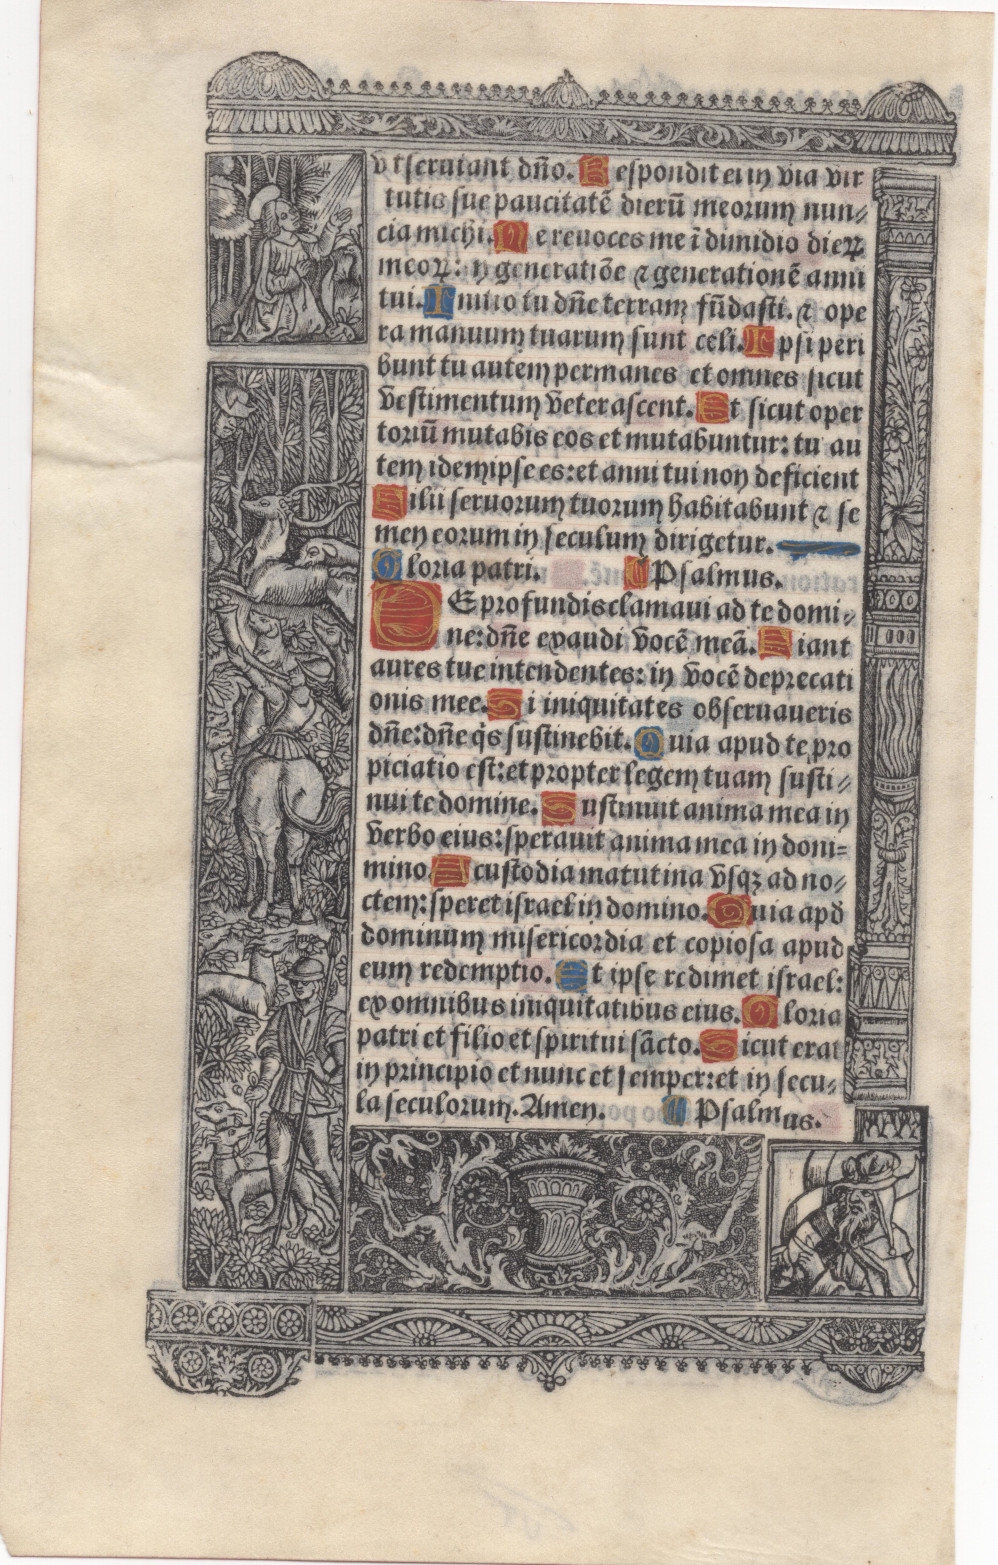 vt seruiant dño. Respondit ei in via vir
tutis sue paucitatē dierū meorum nun⸗
cia michi. Ne reuoces me ī dimidio dieꝝ
meoꝝ: in generatiōe ⁊ generationē anni
tui. Initio tu dñe terram fūdasti. ⁊ ope
ra manuum tuarum sunt celi. Ipsi peri
bunt tu autem permanes et omnes sicut
vestimentum veterascent. Et sicut oper
toriū mutabis eos et mutabuntur: tu au
tem idem ipse es: et anni tui non deficient
Filii seruorum tuorum habitabunt ⁊ se
men eorum in seculum dirigetur.
Gloria patri. Psalmus.
DE profundis clamaui ad te domi⸗
ne: dñe exaudi vocē meā. Fiant
aures tue intendentes: in vocē deprecati
onis mee. Si iniquitates obseruaueris
dñe: dñe q̇s sustinebit. Quia apud te pro
piciatio est: et propter legem tuam susti⸗
nui te domine. Sustinuit anima mea in
verbo eius: sperauit anima mea in domi⸗
mino. A custodia matutina vsqꝫ ad no⸗
ctem: speret israel in domino. Quia apd̄
dominum misericordia et copiosa apud
eum redemptio. Et ipse redimet israel:
ex omnibus iniquitatibus eius. Gloria
patri et filio et spiritui sācto. Sicut erat
in principio et nunc et semper: et in secu⸗
la seculorum. Amen. Psalmus.